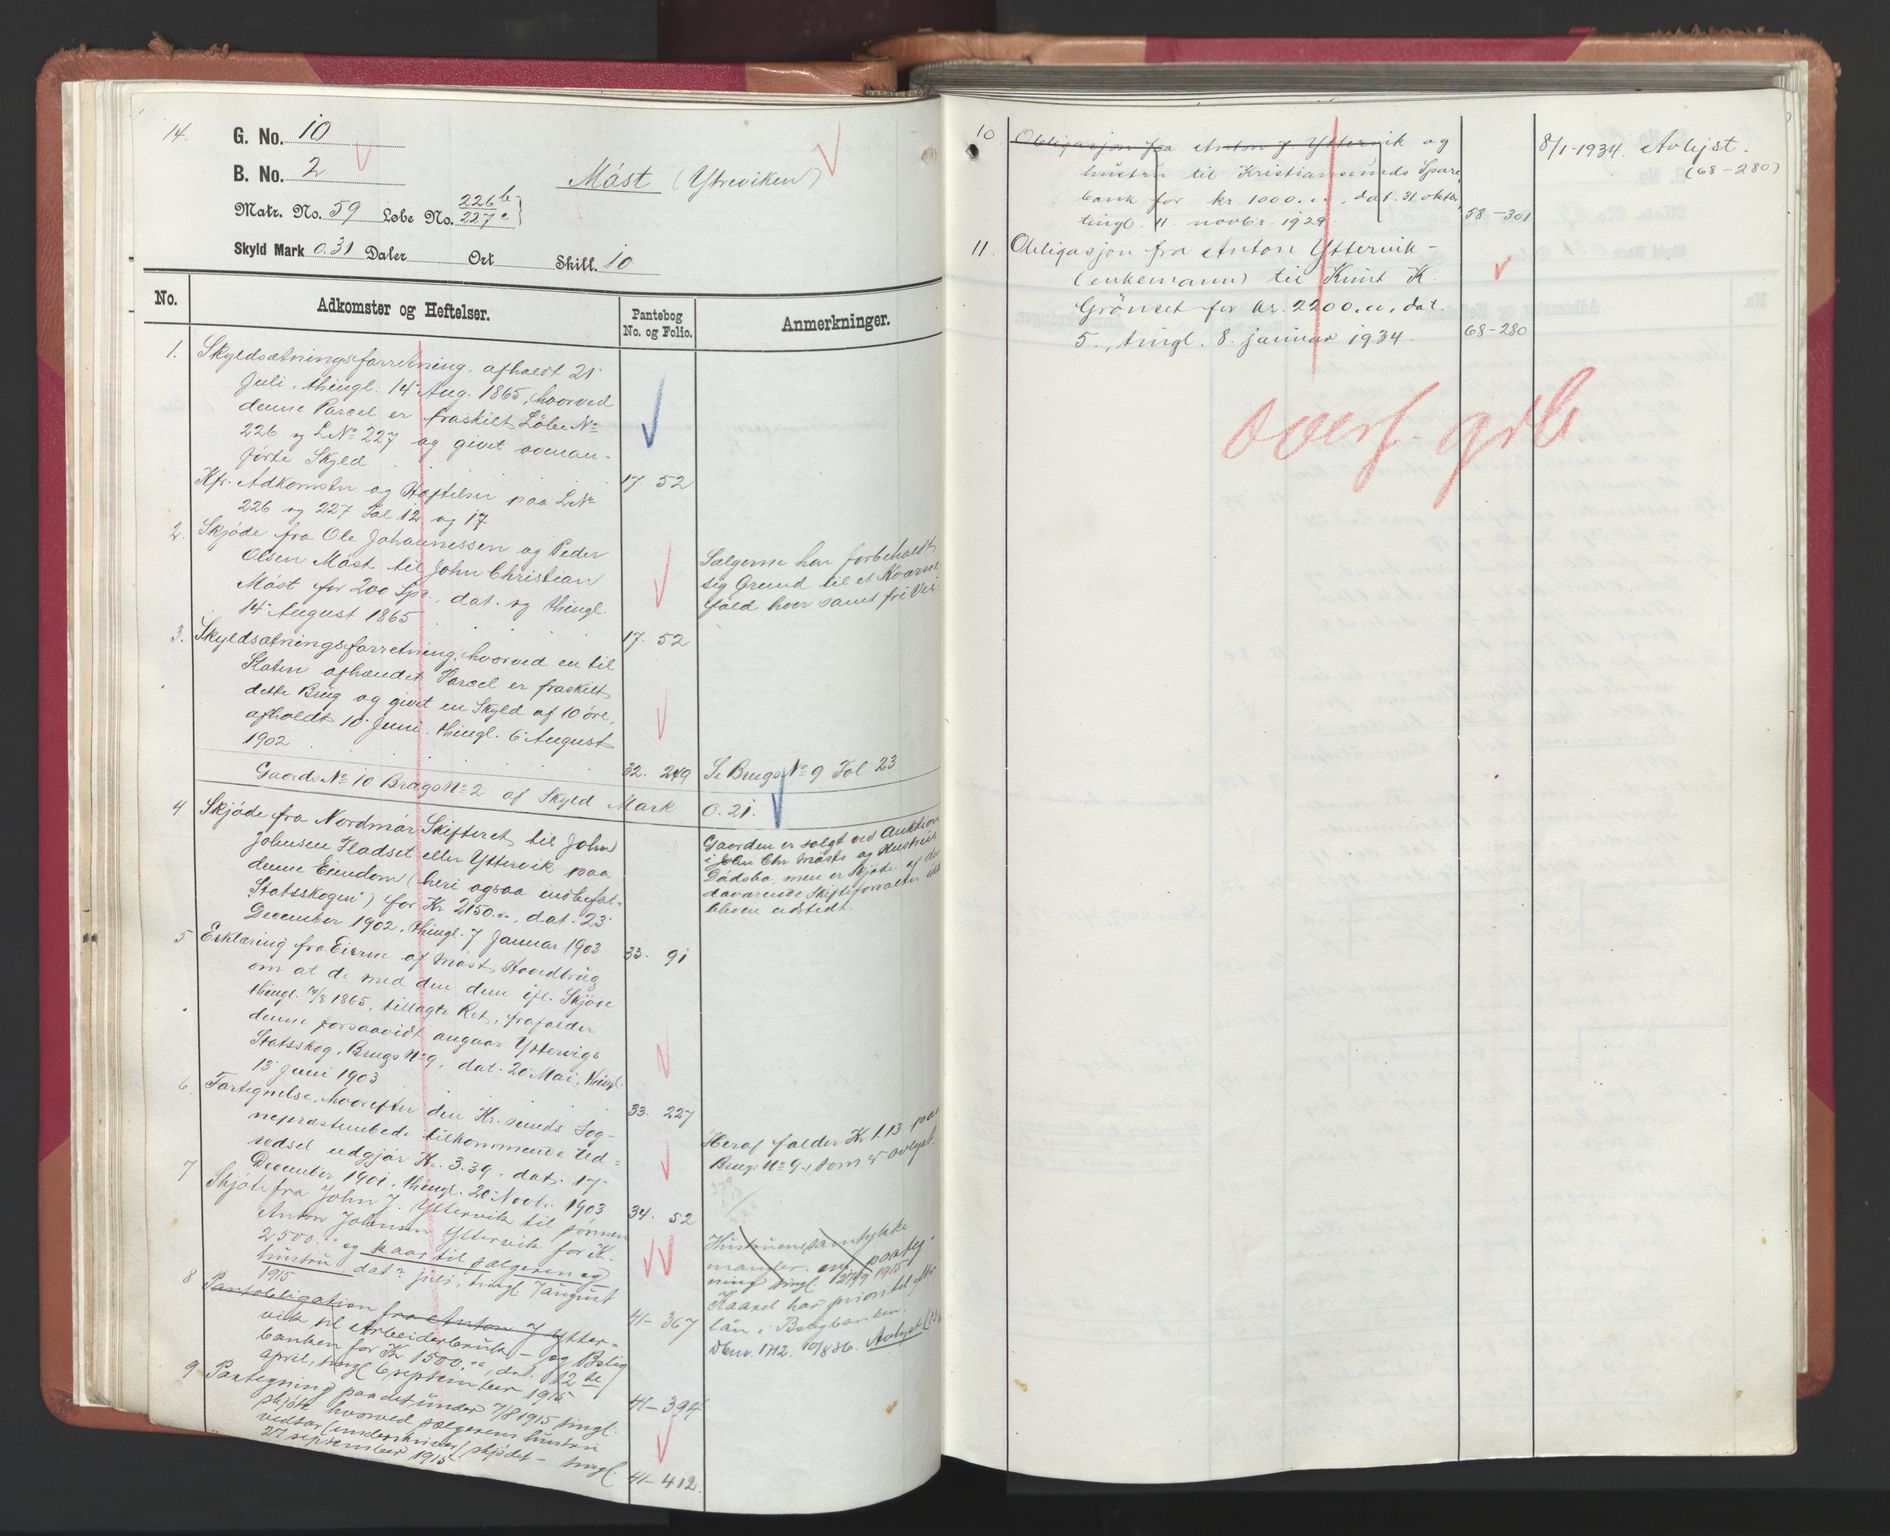 14.
G. No. 10
B. No. 2
Måst (Ytreviken)
Matr. No. 59 Løbe No. 226 b
227 a
Skyld Mark 0.31 Daler Ort Skill. 10
No.
Adkomster og Heftelser.
Pantebog
No. og Folio.
Anmerkninger.
1. Skyldsætningsforretning, afholdt 21
Juli, thingl. 14 Aug. 1865, hvorved
denne Parcel er fraskilt Löbe No
226 og L No 227 og givet ovenan-
førte Skyld
17. 52
Kfr. Adkomster og Hæftelser paa L No
226 og 227 Fol 12 og 17
2. Skjöde fra Ole Johannessen og Peder
Olsen Måst til John Christian
Måst for 200 Spd., dat. og thingl.
14 August 1865
17. 52
Sælgerne har forbeholdt
sig Grund til et Kværne
fald hver samt fri Vei
3. Skyldsætningsforretning, hvorved en til
Staten afhændet Parcel er fraskilt
dette Brug og givet en Skyld af 10 øre,
afholdt 10 Juni, thingl. 6 August
1902
32. 249
Se Brugs No 9 Fol 23
Gaards No 10 Brugs No 2 af Skyld Mark 0.21.
4 Skjöde fra Nordmör Skifteret til John
Johnsen Fladset eller Yttervik paa
denne Eiendom (heri ogsaa indbefat-
Statsskogen) for Kr 2150.00, dat. 23
December 1902, thingl. 7 Januar 1903
33. 91
Gaarden er solgt ved Auktion
i John Chr Måsts og Hustrus
Dödsbo, men er Skjöde af den
daværende Skifteforvalter ikke
bleven udstedt.
5 Erklæring fra Eierne af Måst Hovedbrug
om at de med den dem ifl. Skjöde
thingl. 14/8 1865, tillagte Ret, frafalder
denne forsaavidt angaar Yttervigs
Statsskog, Brugs No 9, dat. 20 Mai, thingl.
13 Juni 1903
33. 227
6. Fortegnelse, hvorefter den Kr.sunds Sog-
nepræstembede tilkommende Ind-
redsel udgjör Kr. 3.39, dat. 17
December 1901, thingl. 20 Novbr. 1903
34. 52
Heraf falder Kr 1.13 paa
Brugs No 9, som er avlyst.
3.39
1.13
2.26
7 Skjöte fra John J. Yttervik til sönnen
Anton Johnsen Yttervik for K.
2500.00 og kaar til sælgeren og
hustru, dat? juli, tingl 7 august
1915
41-367
Hustruens samtykke
mangler. em paateg
ning tingl. 27/9 1915
Kaaret har prioritet efter
lån i Boligbanken.
Dbnr. 1712. 10/8 36. Avlyst
8 Pantobligation fra Anton J Ytter-
vik til Arbeiderbruk- og Bolig
banken for Kr 1500.00, dat. 12te
april, tingl 6 september 1915
41-394
9 Paategning paa det under 7/8 1915 tingl.
skjöte hvorved sælgerens hustru
vedtar (underskriver) skjödet - tingl.
27 september 1915
41-412.
10 Obligasjon fra Anton J Yttervik og
hustru til Kristiansunds Spare
bank for kr 1000.00, dat. 31. oktbr,
tingl. 11 novbr. 1929
58-301
8/1-1934. Avlyst.
(68-280)
11. Obligasjon fra Anton Yttervik -
(enkemann) til Knut K.
Grönset for kr. 2200.00, dat.
5., tingl. 8. januar 1934.
68-280
overf. grb.